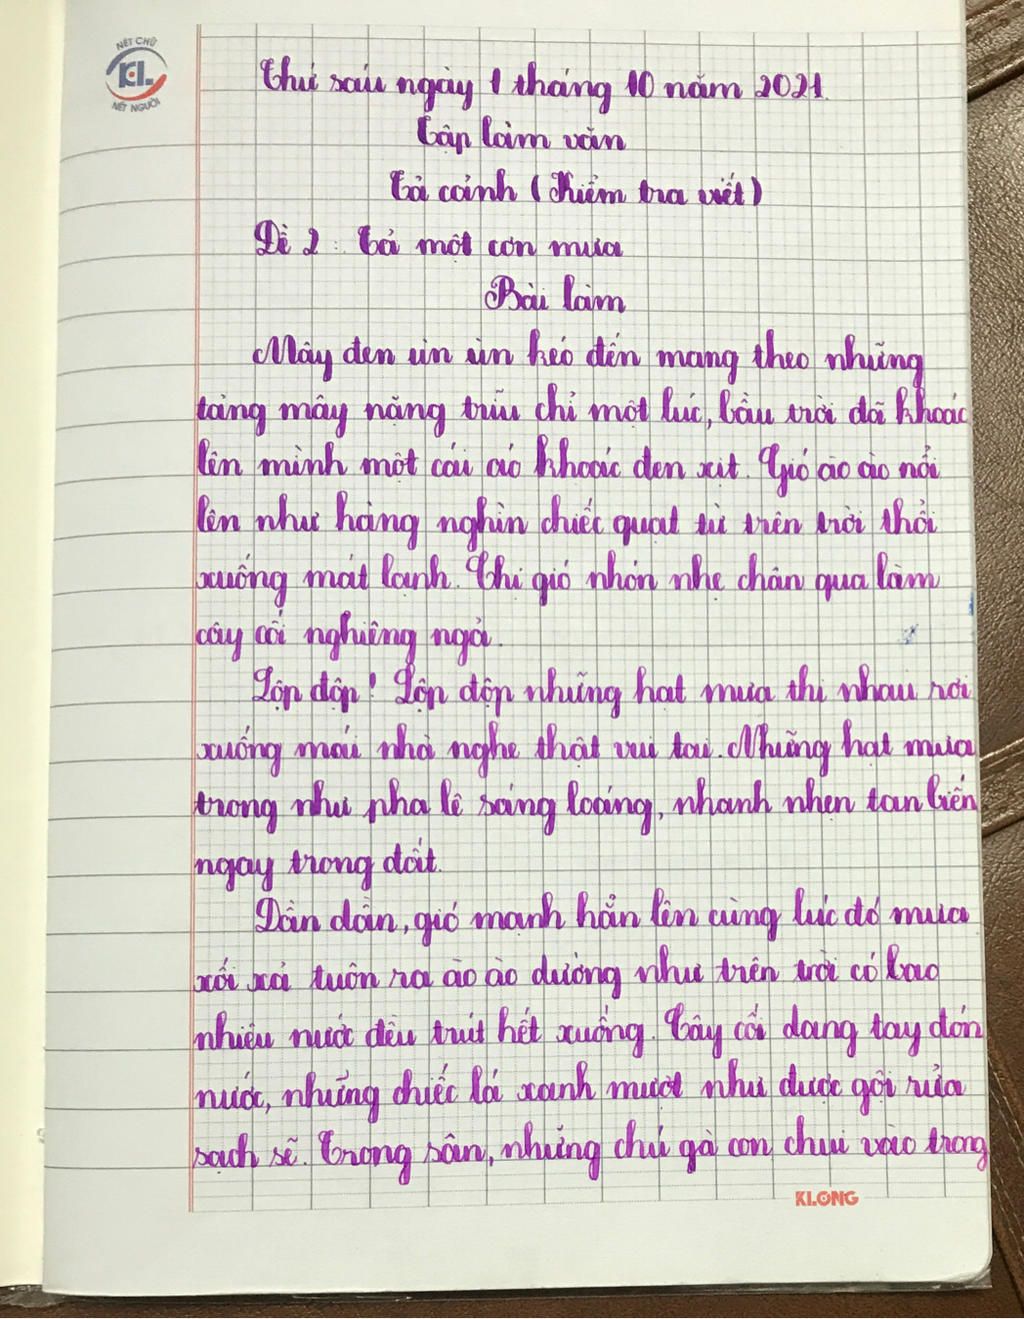 NÉT CHỮ
KL
NÉT NGƯỜI
Thứ sáu ngày 1 tháng 10 năm 2021
Tập làm văn
Tả cảnh (Kiểm tra viết)
Đề 2: Tả một cơn mưa
Bài làm
Mây đen ùn ùn kéo đến mang theo những
tảng mây nặng trĩu chỉ một lúc, bầu trời đã khoác
lên mình một cái áo khoác đen xịt. Gió ào ào nổi
lên như hàng nghìn chiếc quạt từ trên trời thổi
xuống mát lạnh. Chị gió nhón nhẹ chân qua làm
cây cối nghiêng ngả.
Lộp độp! Lộp độp những hạt mưa thi nhau rơi
xuống mái nhà nghe thật vui tai. Những hạt mưa
trong như pha lê sáng loáng, nhanh nhẹn tan biến
ngay trong đất.
Dần dần, gió mạnh hẳn lên cùng lúc đó mưa
xối xả tuôn ra ào ào dường như trên trời có bao
nhiêu nước đều trút hết xuống. Cây cối dang tay đón
nước, những chiếc lá xanh mượt như được gội rửa
sạch sẽ. Trong sân, những chú gà con chui vào trong
KLONG